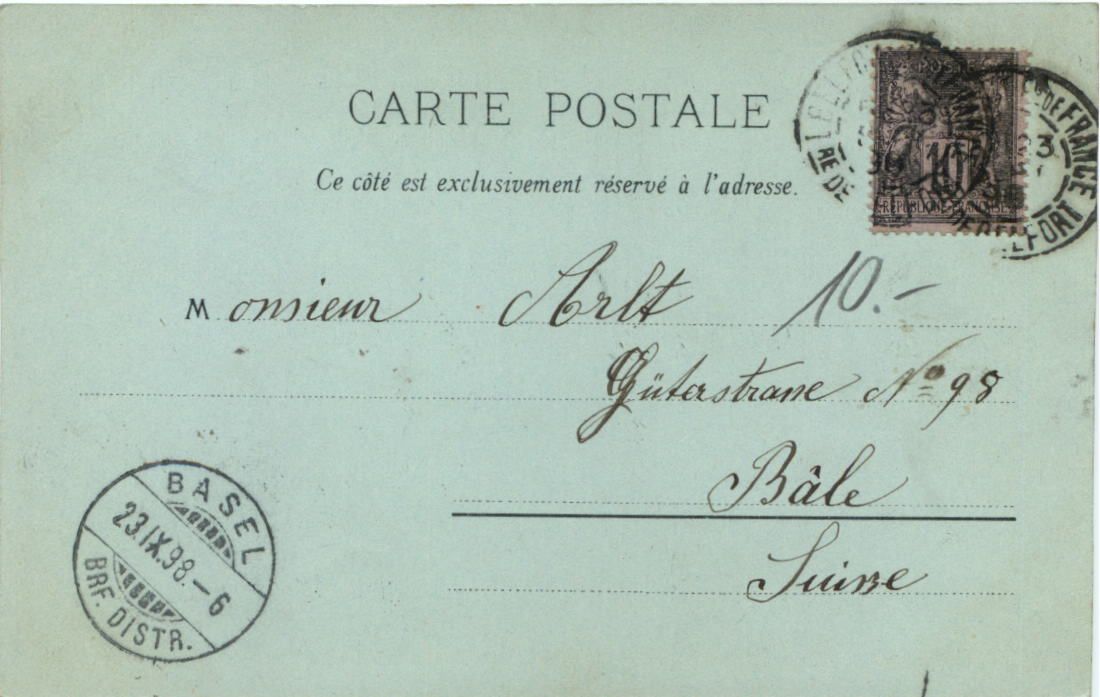 CARTE POSTALE
Ce côté est exclusivement réservé à l'adresse.
POSTE
10
REPUBLIQUE FRANÇAISE
BELFORT
FRANCE
Monsieur Arlt
10.-
Güterstrasse Nº 98
Bâle
Suisse
BASEL
23.IX.98.-6
BRF. DISTR.